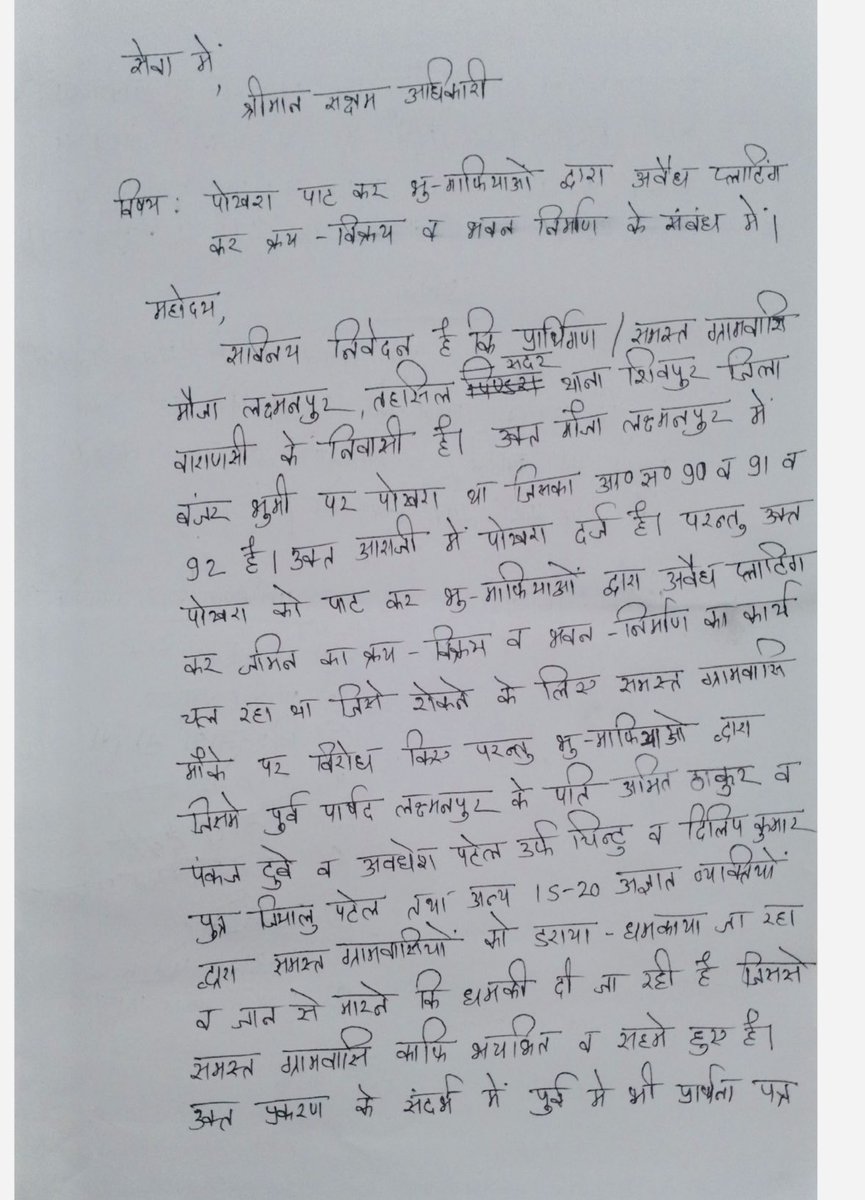 सेवा में,
श्रीमान सक्षम अधिकारी
विषय : पोखरा पाट कर भु-माफियाओ द्वारा अवैध प्लाटिंग
कर क्रय - विक्रय व भवन निर्माण के संबंध में।
महोदय,
सविनय निवेदन है कि प्रार्थिगण / समस्त ग्रामवासि
सदर
मौजा लक्ष्मनपुर, तहसिल थाना शिवपुर जिला
वाराणसी के निवासी है। उक्त मौजा लक्ष्मनपुर में
बंजर भुमी पर पोखरा था जिसका आ० स० 90 व 91 व
92 है। उक्त आराजी में पोखरा दर्ज है। परन्तु उक्त
पोखरा को पाट कर भु-माफियाओं द्वारा अवैध प्लाटिंग
कर जमिन का क्रय - विक्रय व भवन - निर्माण का कार्य
चल रहा था जिसे रोकने के लिए समस्त ग्रामवासि
मौके पर विरोध किए परन्तु भु-माफियाओ द्वारा
जिसमे पुर्व पार्षद लक्ष्मनपुर के पति अमित ठाकुर व
पंकज दुबे व अवधेश पटेल उर्फ चिन्टु व दिलिप कुमार
पुत्र पटेल तथा अन्य 15-20 अज्ञात व्यक्तियों
द्वारा समस्त ग्रामवासियों को डराया - धमकाया जा रहा
व जान से मारने कि धमकी दी जा रही है जिससे
समस्त ग्रामवासि काफि भयभित व सहमे हुए है।
उक्त प्रकरण के संदर्भ में पुर्व मे भी प्रार्थना पत्र